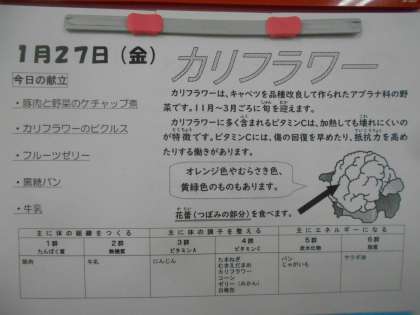 1月27日（金）
カリフラワー
今日の献立
・豚肉と野菜のケチャップ煮
・カリフラワーのピクルス
・フルーツゼリー
・黒糖パン
・牛乳
カリフラワーは、キャベツを品種改良して作られたアブラナ科の野
菜です。11月～3月ごろに旬を迎えます。
カリフラワーに多く含まれるビタミンCは、加熱しても壊れにくいの
が特徴です。ビタミンCには、傷の回復を早めたり、抵抗力を高め
たりする働きがあります。
オレンジ色やむらさき色、
黄緑色のものもあります。
花蕾（つぼみの部分）を食べます。
主に体の組織をつくる
主に体の調子を整える
主にエネルギーになる
1群
2群
3群
4群
5群
6群
たんぱく質
無機質
ビタミンA
ビタミンC
炭水化物
脂質
豚肉
牛乳
にんじん
たまねぎ
むきえだまめ
カリフラワー
コーン
ゼリー（みかん）
パン
じゃがいも
サラダ油